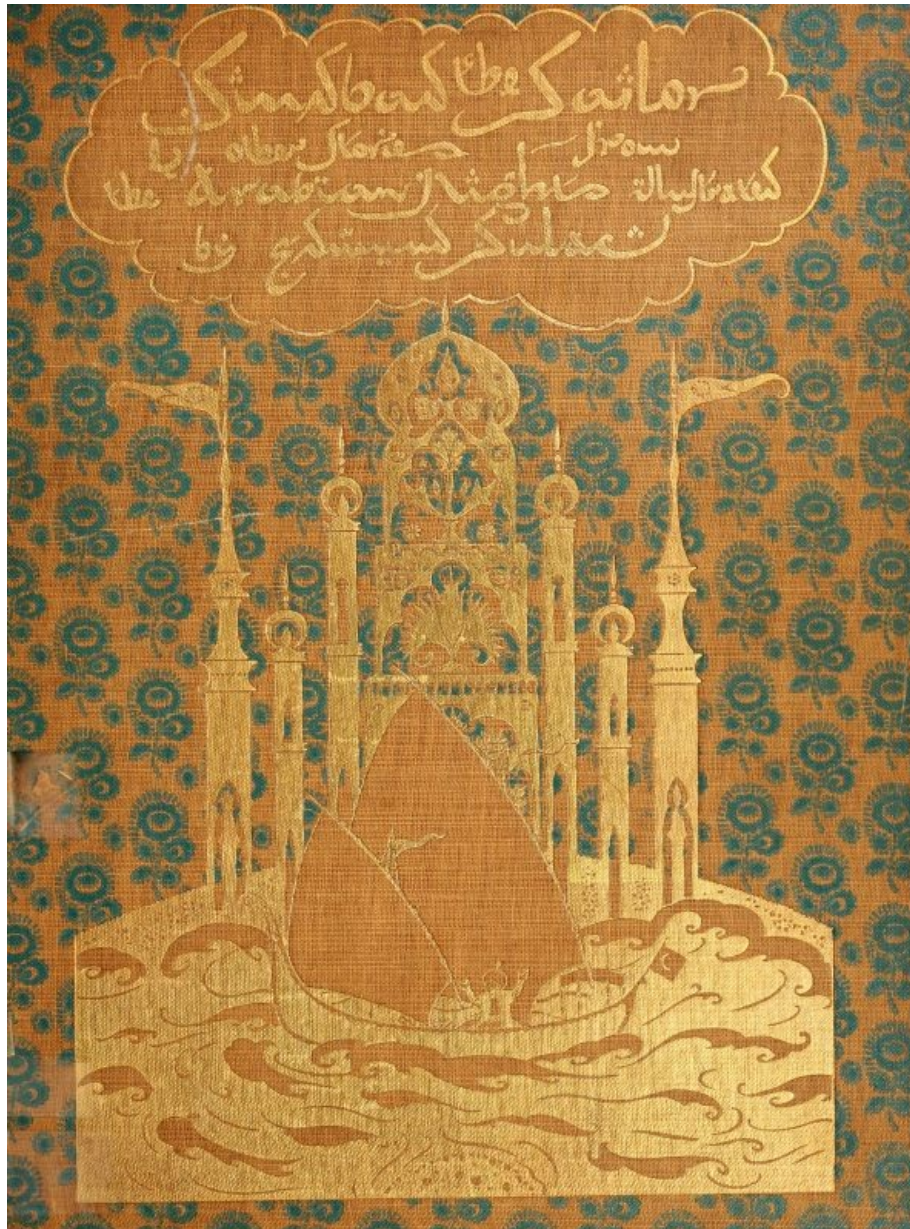 Sindbad the Sailor
& other Stories from
the Arabian Nights illustrated
by Edmund Dulac